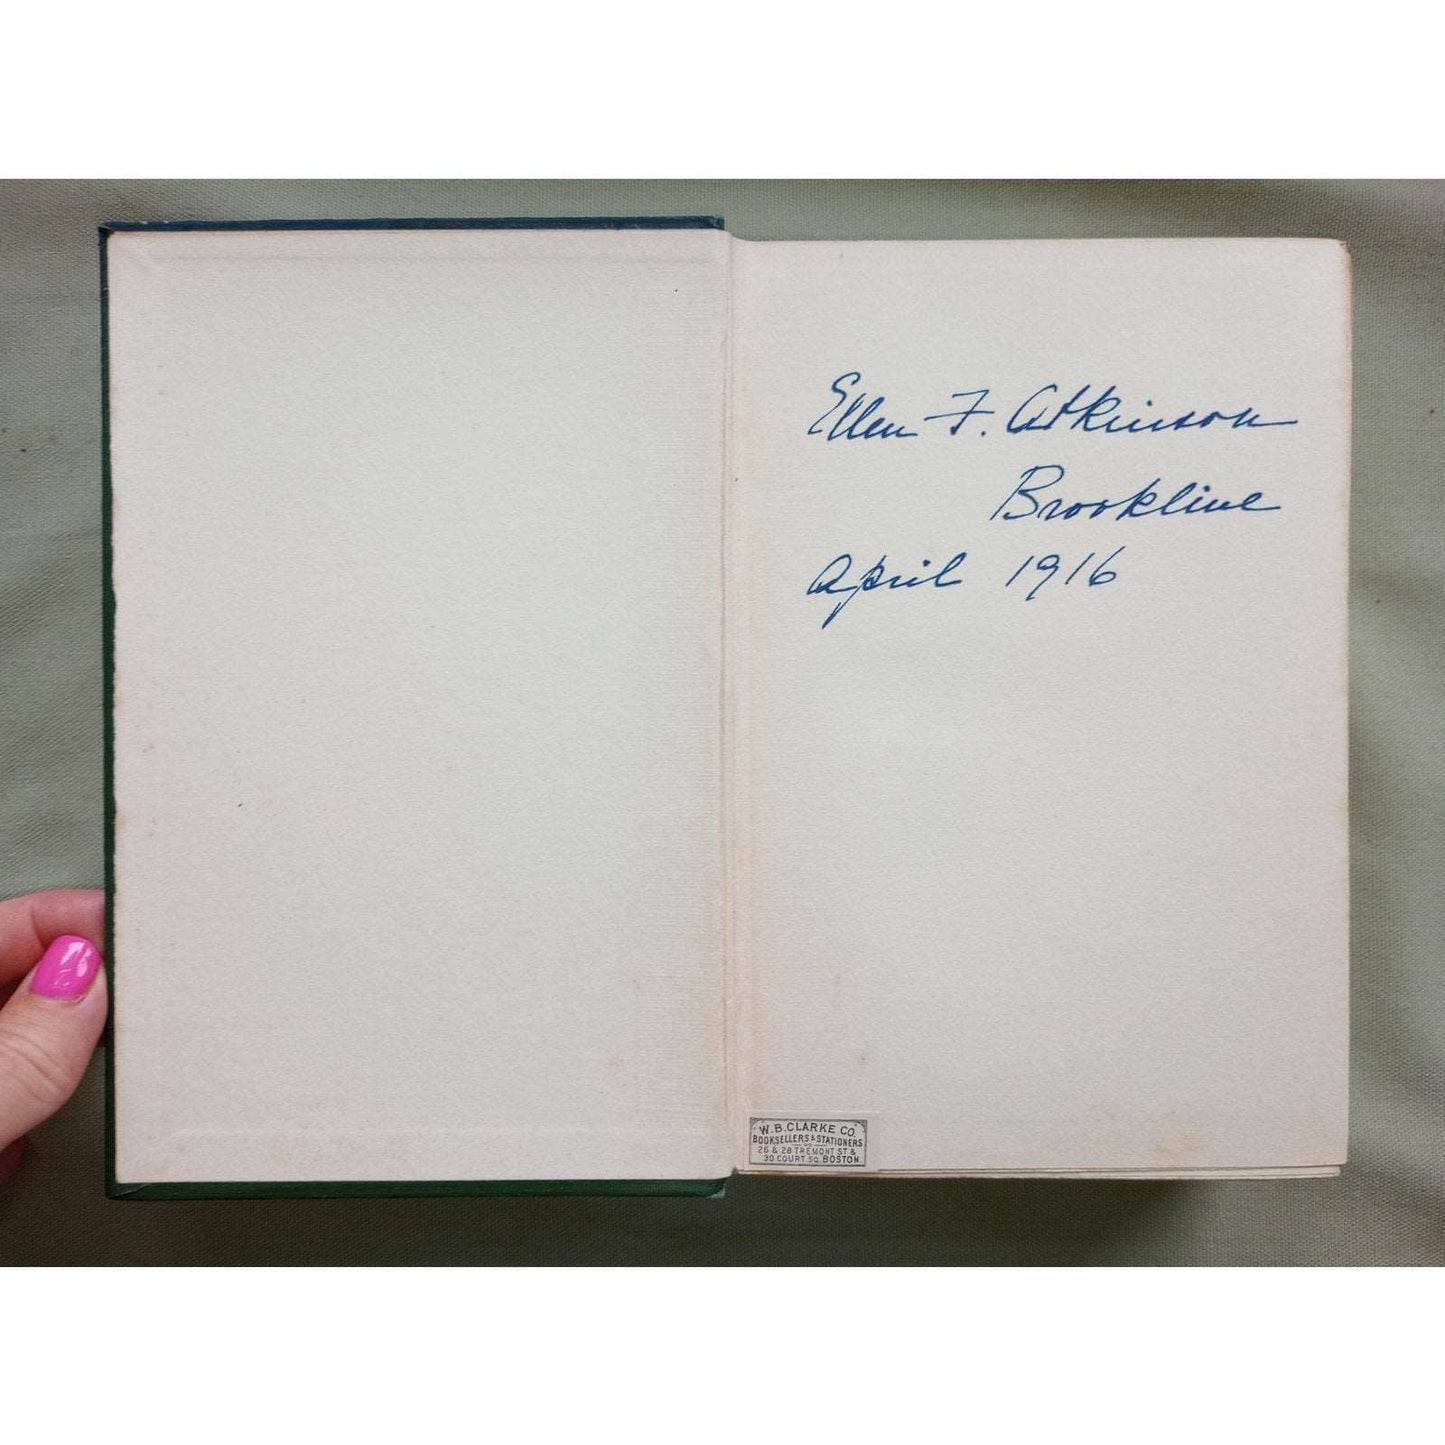 Ellen F. Atkinson
Brookline
April 1916
W.B. CLARKE CO.
BOOKSELLERS & STATIONERS
26 & 28 TREMONT ST. &
30 COURT SQ. BOSTON.